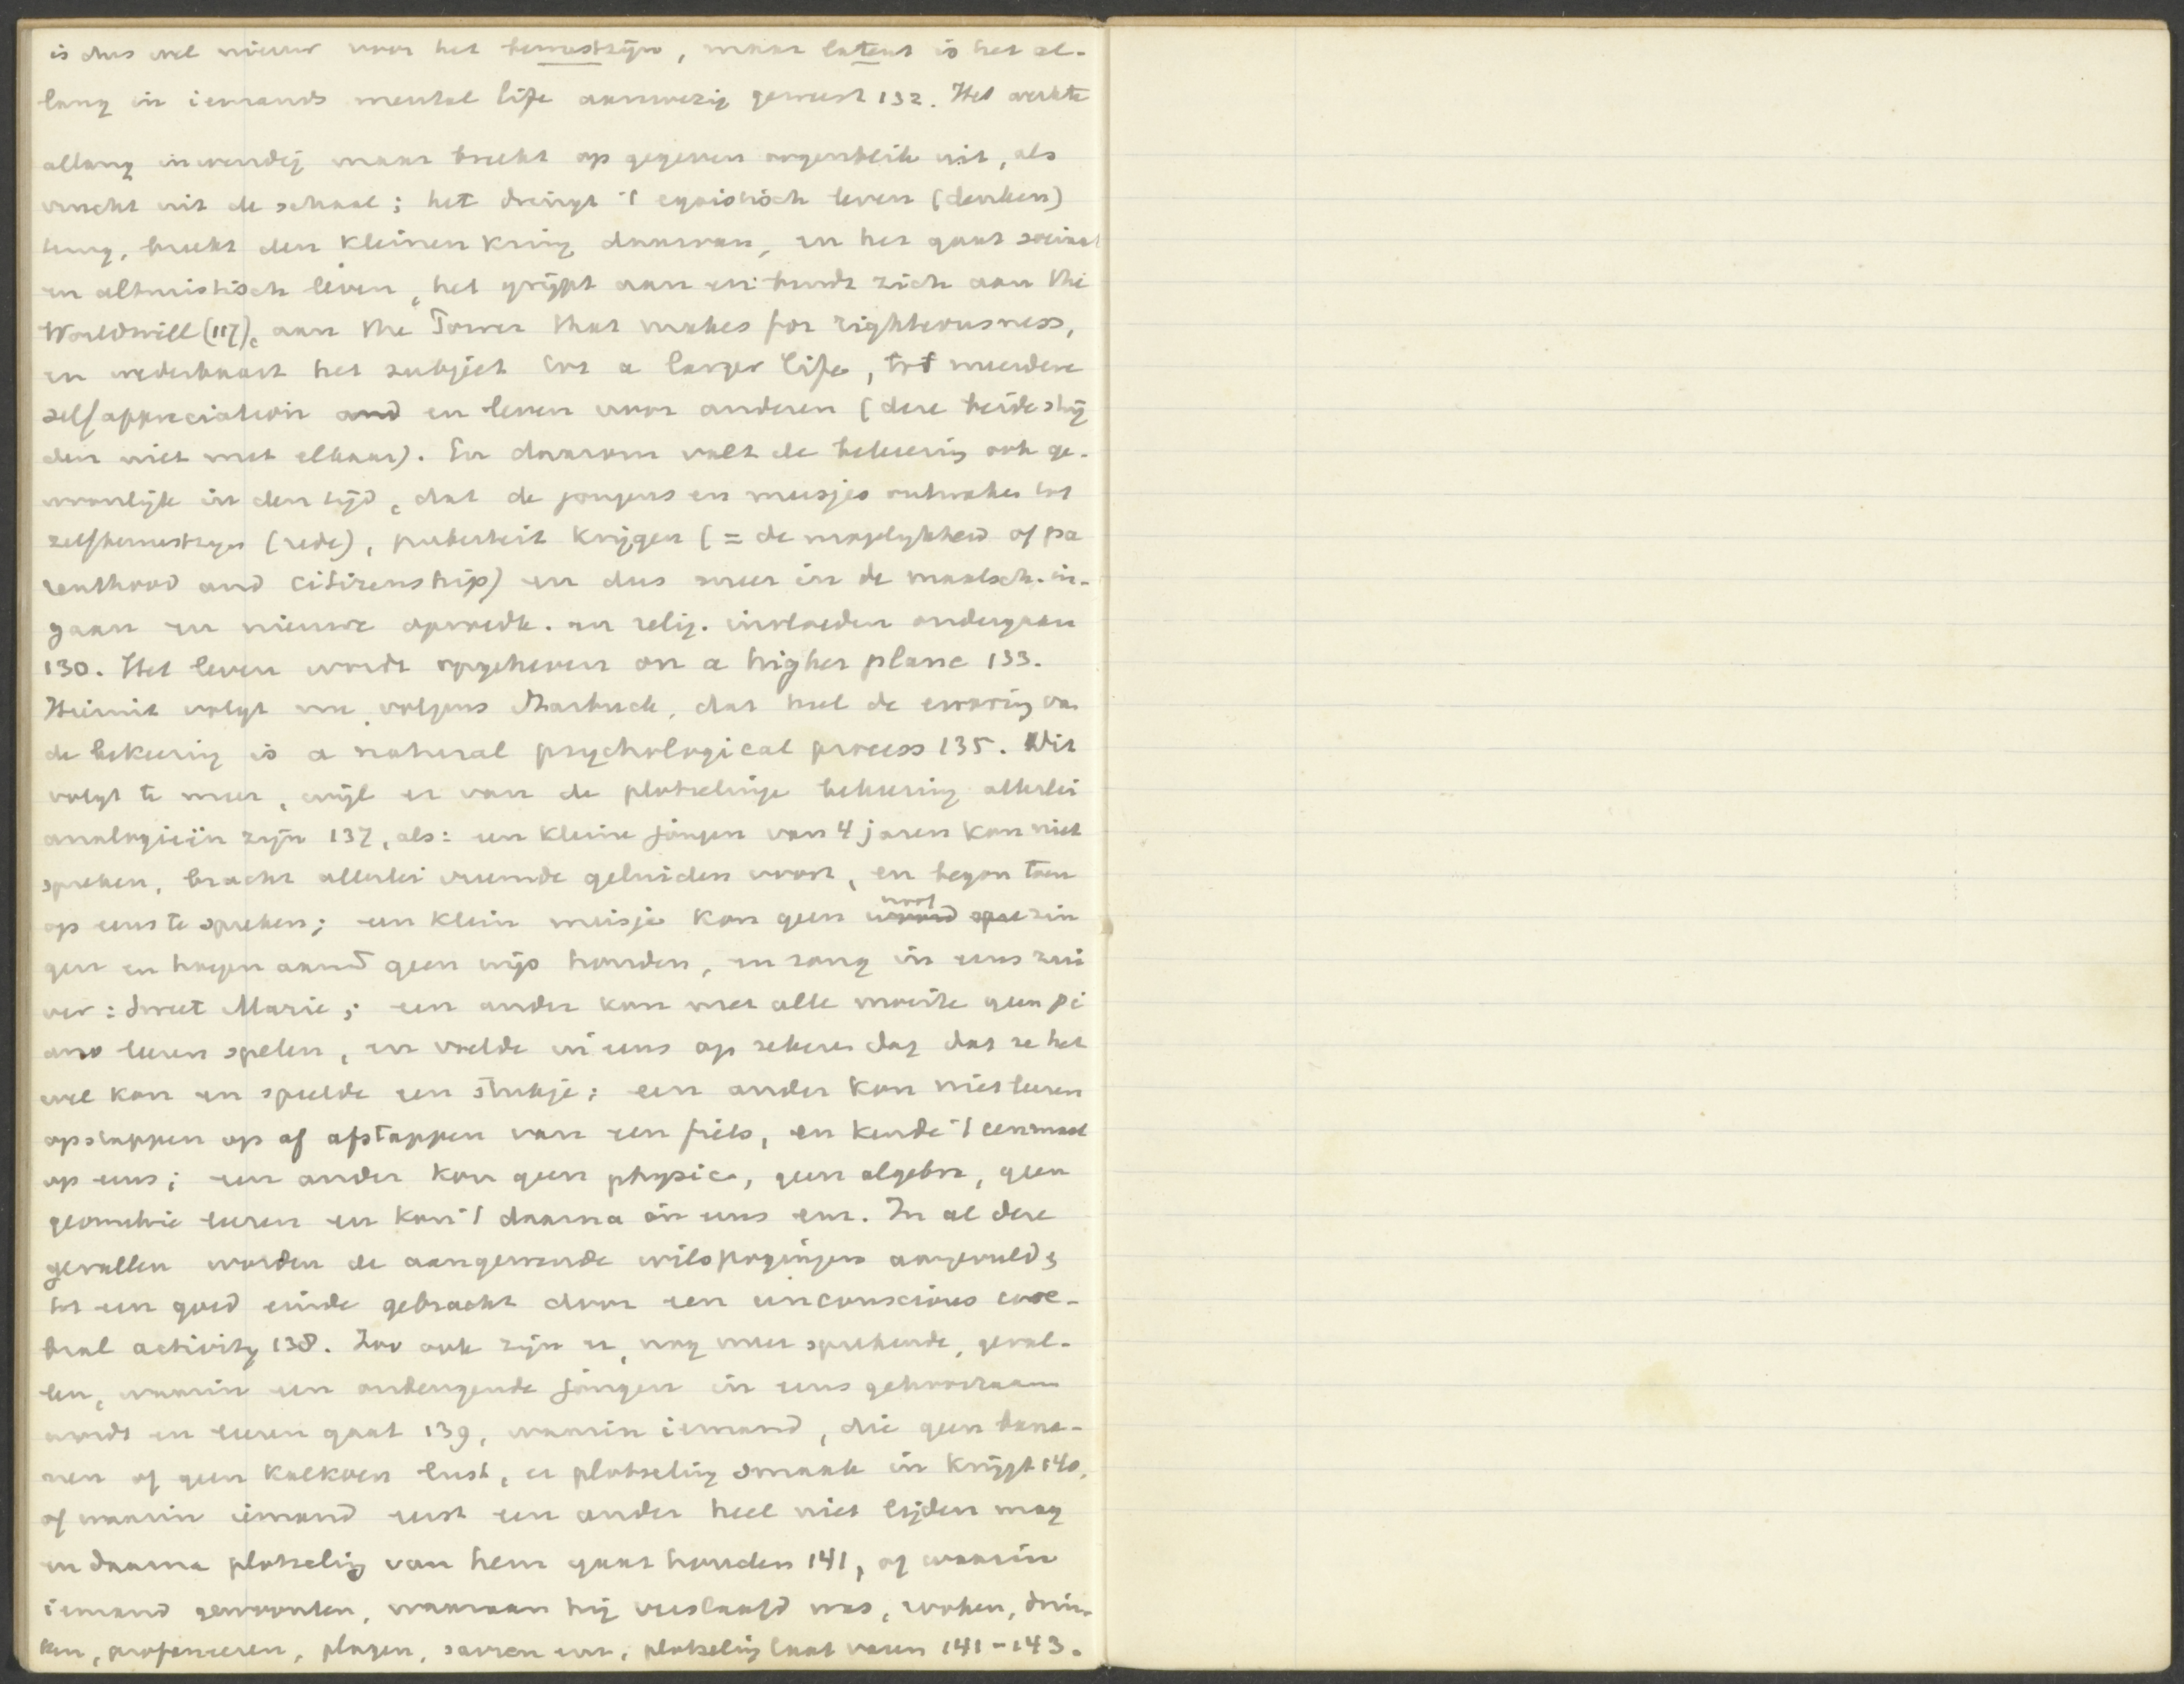 is dus wel nieuw voor het bewustzijn, maar latent is het al-
lang in iemands mental life aanwezig geweest 132. Het werkte
allang inwendig maar breekt op gegeven oogenblik uit, als
vrucht uit de schaal; het dringt 't egoistisch leven (denken)
terug, breekt den kleinen kring daarvan, en het gaat sociaal
en altruistisch leven, het grijpt aan en bindt zich aan the
Worldwill (117), aan the Power that makes for righteousness,
en wederbaart het subject tot a larger life, tot meerdere
selfappreciation and en leven voor anderen (deze beide strij
den niet met elkaar). En daarom valt de bekeering ook ge-
woonlijk in den tijd, dat de jongens en meisjes ontwaken tot
zelfbewustzijn (rede), puberteit krijgen (= de mogelijkheid of pa
renthood and citizenship) en dus meer in de maatsch. in-
gaan en nieuwe opvoedk. en relig. invloeden ondergaan
130. Het leven wordt opgeheven on a higher plane 133.
Hieruit volgt nu, volgens Starbuck, dat heel de ervaring van
de bekeering is a natural psychological process 135. Dit
volgt te meer, wijl er van de plotselinge bekeering allerlei
analogieën zijn 137, als: een kleine jongen van 4 jaren kon niet
spreken, bracht allerlei vreemde geluiden voort, en begon toen
op eens te spreken; een klein meisje kon geen woord spre noot zin
gen en hoegenaamd geen wijs houden, en zong in eens zui
ver: Sweet Marie; een ander kon met alle moeite geen pi
ano leeren spelen, en voelde in eens op zekeren dag dat ze het
wel kon en speelde een stukje; een ander kon niet leeren
opstappen op of afstappen van een fiets, en kende 't eenmaal
op eens; een ander kon geen physica, geen algebra, geen
geometrie leeren en kon 't daarna in eens enz. In al deze
gevallen worden de aangewende wilspogingen aangevuld &
tot een goed einde gebracht door een unconscious cere-
bral activity 138. Zoo ook zijn er, nog meer sprekende, geval-
len, waarin een ondeugende jongen in eens gehoorzaam
wordt en leeren gaat 139, waarin iemand, die geen bana-
nen of geen kalkoen lust, er plotseling smaak in krijgt 140,
of waarin iemand eerst een ander heel niet lijden mag
en daarna plotseling van hem gaat houden 141, of waarin
iemand gewoonten, waaraan hij verslaafd was, rooken, drin-
ken, profaneeren, plagen, sarren enz, plotseling laat varen 141-143.